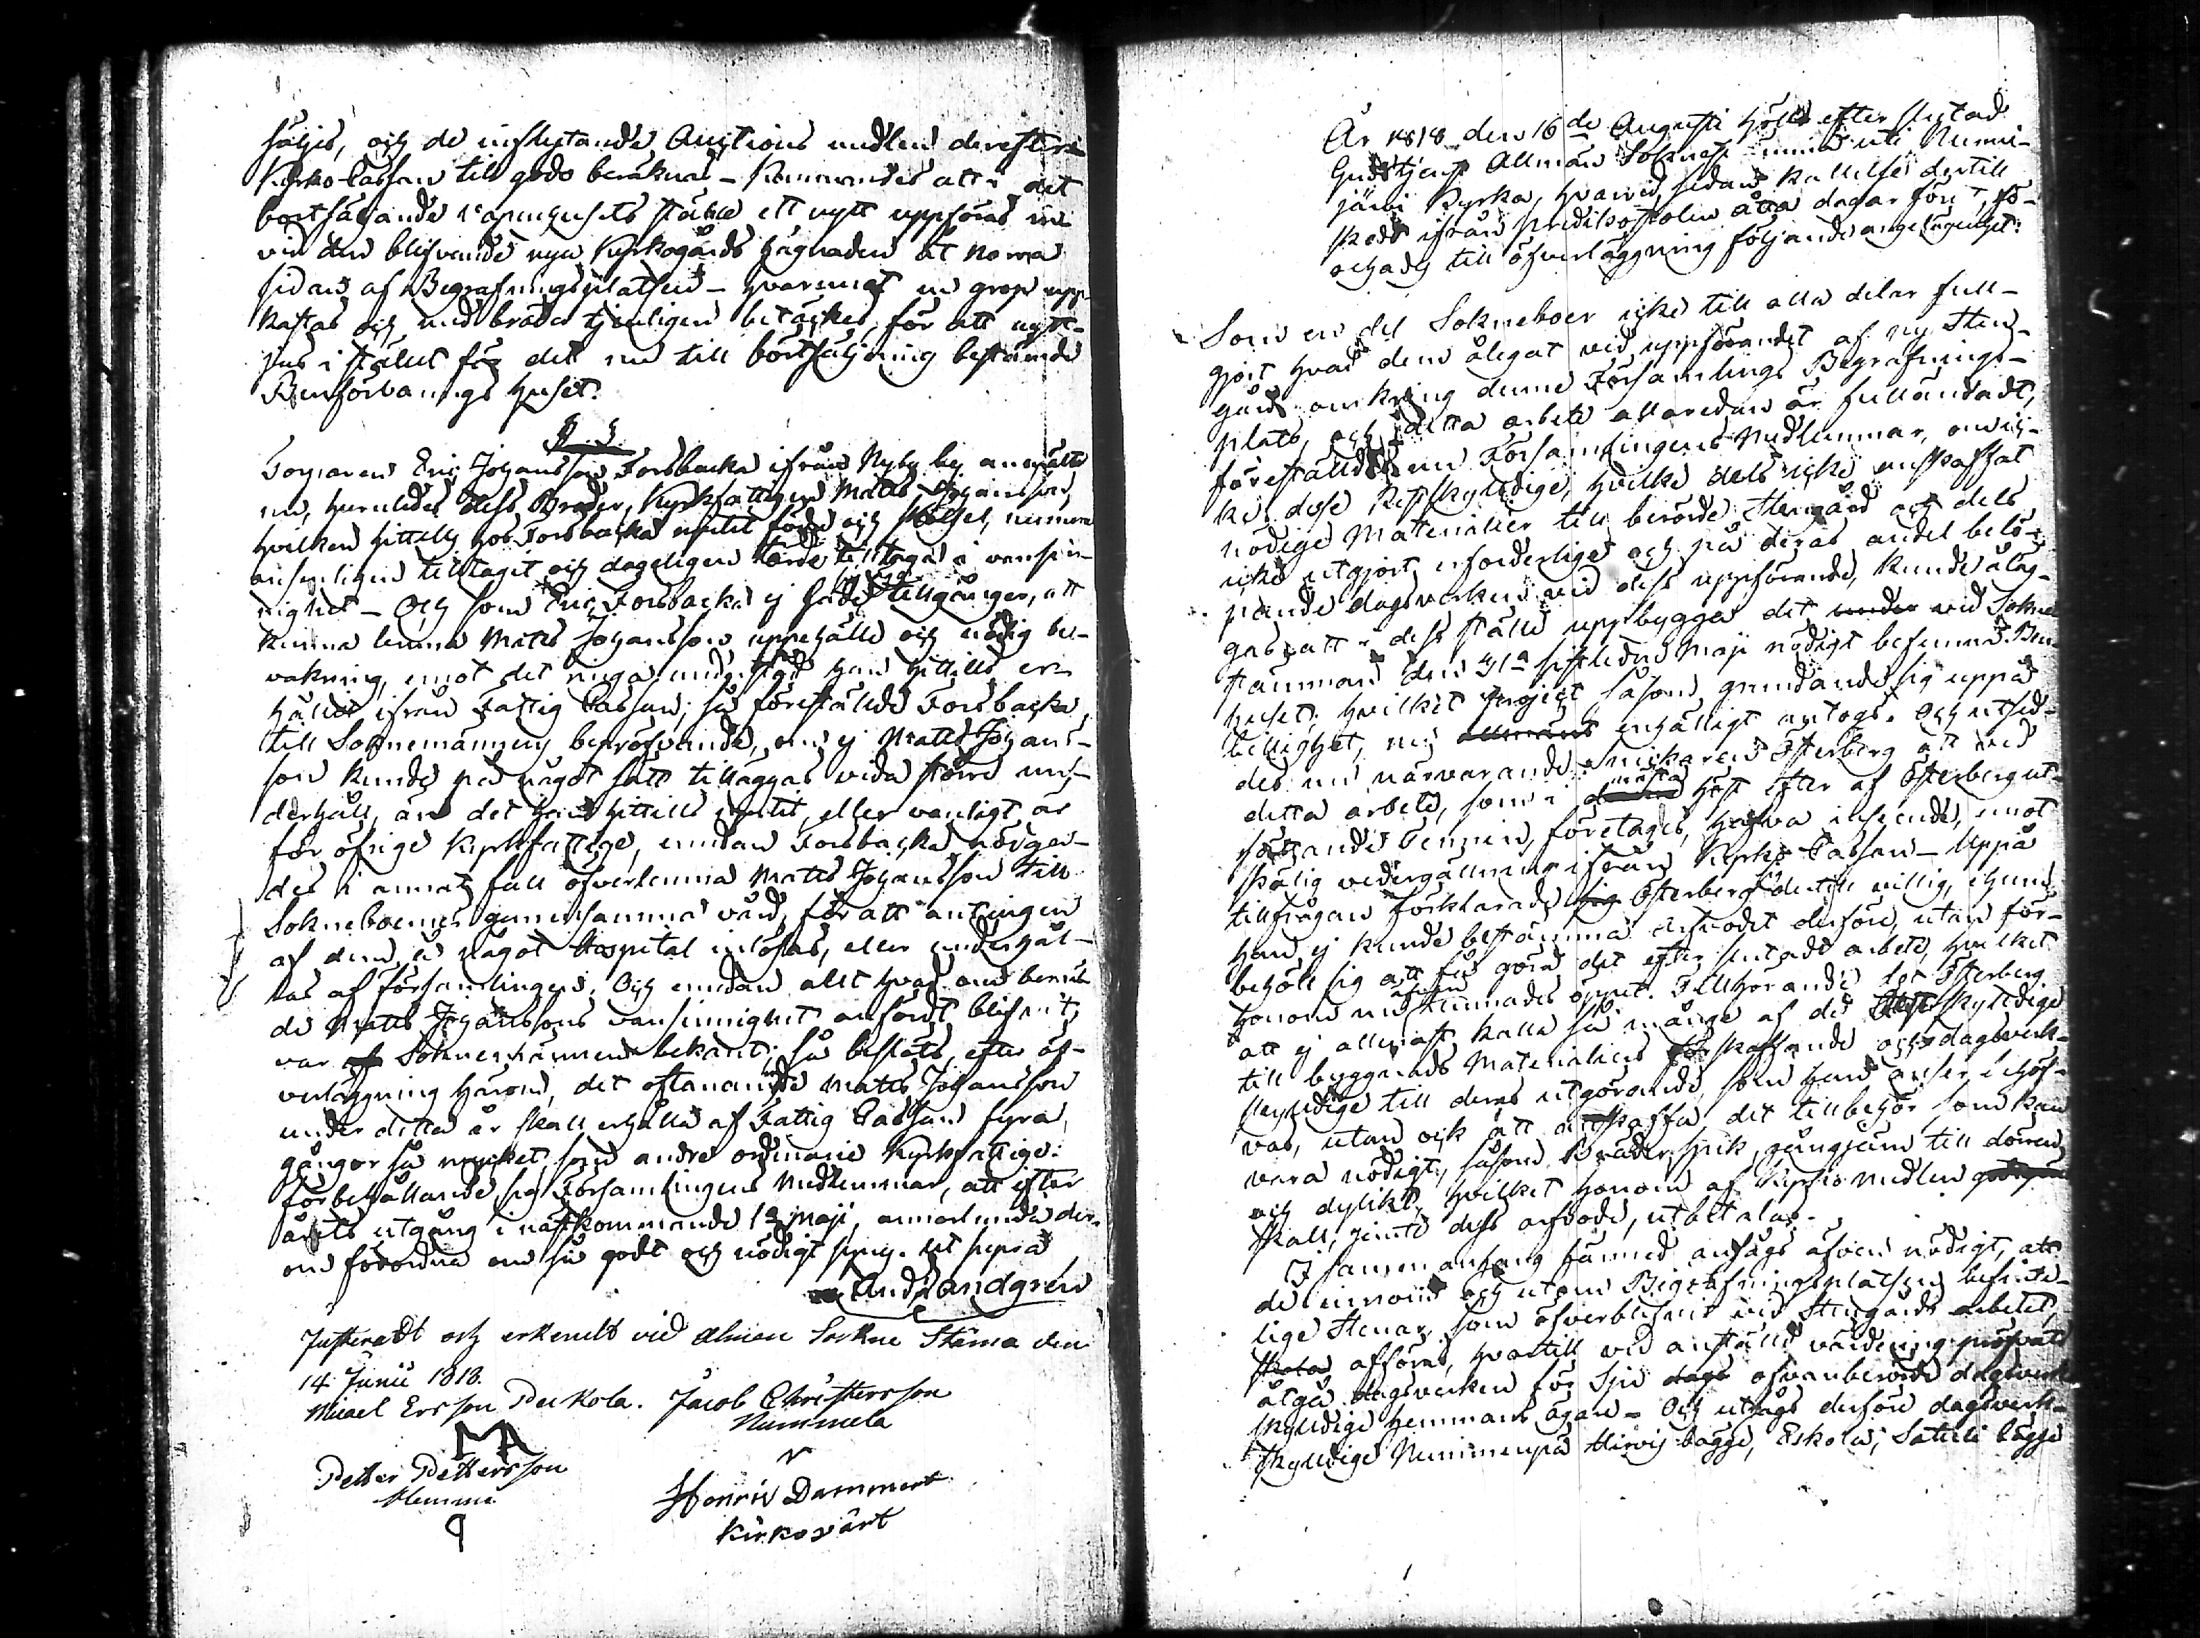 säljes, och de inflytande Auctions medlen derefter
Kyrko Cassan till godo beräknas – kommandes att i det
bortsäljande vapenhusets ställe ett nytt uppföras in
vid den blifvande nya Kyrkogårds hägnaden åt norra
sidan af Begrafningsplatsen – hvarinnat en grop upp-
kastas och med bräder tjenligen betäckes, för att nytt-
jas i stället för det nu till bortsäljning bestämde
Benförvarings huset.
§ 3.
Torparen Eric Johansson Forsbacka ifrån Nyby by anmälte
nu, huruledes dess Broder, Kyrkfattigen Matts Johansson,
hvilken hittills hos Forsbacka njutit föda och skötsel, numera
ansenligen tilltagit och dageligen torde tilltaga i vansin-
nighet – Och som Eric Forsbacka ej hade tillgånger, att
kunna lemna Matts Johansson uppehälle och nödig be-
vakning, emot det ringa understöd han hittills er-
hållit ifrån Fattig Cassan; så förestälde Forsbacka,
till Soknemännens bepröfvande, om ej Matts Johans-
son kunde på något sätt tilläggas vida större un-
derhåll, än det han hittills njutit, eller vanligt är
för öfrige Kyrkfattige, emedan Forsbacka nödgas-
des i annat fall öfverlemna Matts Johansson till
Sokneboernes gemensamma vård, för att antingen
af dem, å något Hospital inlösas, eller underhål-
las af församlingen. Och emedan allt hvad om beräk-
de Matts Johanssons vansinnighet anfördt blifvit,
var Soknemännen bekant; så beslöts, efter öf-
verläggning härom, det oftanämnde Matts Johansson
under detta år skall erhålla af Fattig Cassan fyra
gångor så mycket, som andre ordinarie Kyrkfattige:
förbehållande sig Församlingens Medlemmar, att efter
årets utgång i nästkommande 1a Maji, annorlunda der-
om förordna om så godt och nödigt synes. Ut supra
And. Landgren
Justeradt och erkendt vid alman Sockne Stäma den
14 Junii 1818.
Micael Ersson Puckola. Jacob Christersson
Nummela
MA
Petter Pettersson
Henric Dammert
Kirkovärt
År 1818 den 16de Augusti hölts efter slutad
Gudstjenst Allmän Soknestämma uti Nummi-
järvi Kyrka, hvarvid, sedan kallelse dertill
skedt ifrån predikostolen åtta dagar förut, fö-
rehades till öfverläggning följande angelägenhet:
Som en del Sokneboer icke till alla delar full-
gjort hvad dem ålegat vid uppförandet af ny Sten-
gård omkring denne Församlings Begrafnings-
plats, och detta arbete allaredan är fulländadt,
föreställdes nu Församlingens Medlemmar, om ic-
ke desse Restskyldige, hvilke dels icke anskaffat
nödige Materialier till berörde Stengård och dels
icke utgjort erforderlige och på deras andel belö-
pande dagsverken vid dess uppförande, kunde åläg-
gas, att i dess ställe uppbygga det vid Sokne
stämman den 31a sistleden Maji nödigt befunne Ben
huset; hvilket såsom grundande sig uppå
billighet, nu enhälligt antogs. Och utsed-
des nu närvarande Snickaren Österberg att vid
detta arbete, som i nästa höst efter af Österberg ut-
sättande Terminer, företages, hafva inseende, emot
skälig vedergällning ifrån Kyrko Cassan – Uppå
tillfrågan förklarade Österberg sig dertill villig, ehuru
han ej kunde bestämma arfvodet derföre, utan för-
behöll sig att få göra det efter slutadt arbete, hvilket
honom nu lemnades öppet. Tillhörande det Österberg
att ej allenast kalla så många af de Restskyldige
till byggnads Materialiers skaffande och dagsverk-
skyldige till deras utgörande, som han anser behöf-
vas, utan ock att skaffa det tillbehör som kan
vara nödigt, såsom Bräder, spik, gångjern till dörren,
och dylikt, hvilket honom af Kyrkio medlen
skall, jemte dess arfvode, utbetalas.
I sammanhang härmed ansågs äfven nödigt, att
de innom och utom Begrafningsplatsen befinte-
lige Stenar, som öfverblifvit vid Stengårds arbetet,
afföras, hvartill vid anställd värdering pröfvats
åtgå dagsverken för Sju ofvanberörde dagsverks
skyldige hemmans ägare – Och utsågs derföre dagsverk-
skyldige Nummenpä Hirvij bägge, Eskola, Sattili bägge